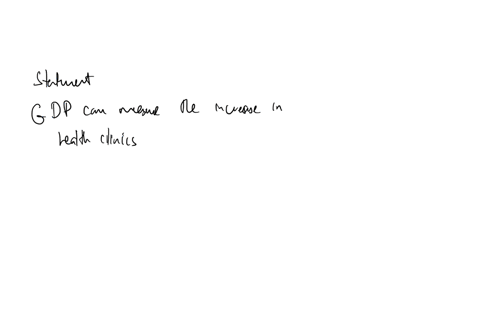 Statement
GDP can measure the increase in
health clinics